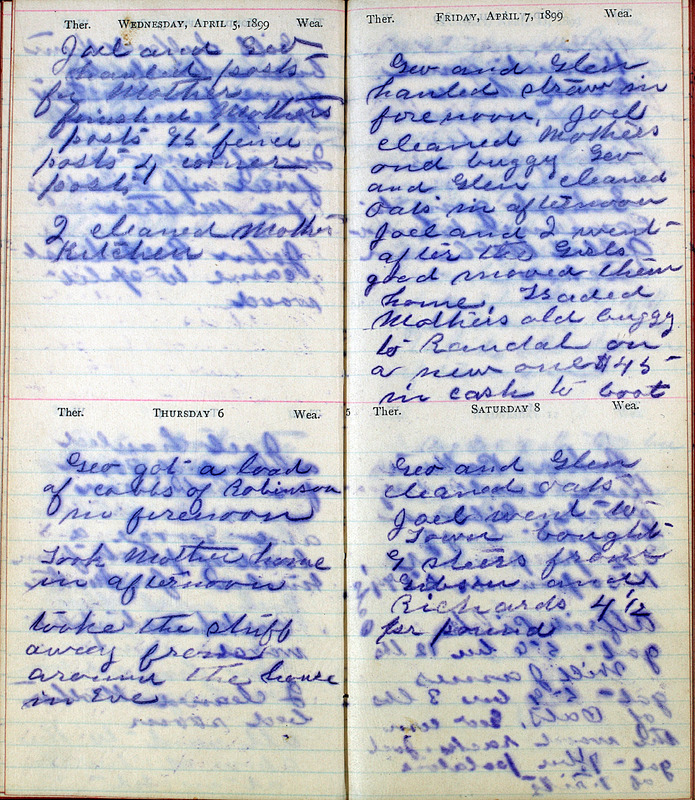 Ther. WEDNESDAY, APRIL 5, 1899 Wea.
Joel and Geo
hauled posts
for Mother
finished Mothers
posts 95 fence
posts 4 corner
posts
I cleaned Mother
Kitchen
Ther. THURSDAY 6 Wea.
Geo got a load
of cobbs of Robinson
in forenoon
Took Mother home
in afternoon
tooke the stuff
away from
around the house
in Eve
Ther. FRIDAY, APRIL 7, 1899 Wea.
Geo and Glen
hauled straw in
forenoon, Joel
cleaned Mothers
and buggy Geo
and Glen cleaned
oats in afternoon
Joel and I went
after the Girls
good moved them
home, Traded
Mothers old buggy
to Randal on
a new one $45
in cash to boot
Ther. SATURDAY 8 Wea.
Geo and Glen
cleaned oats
Joel went to
Town bought
7 steers from
Gibson and
Richards 4 1/2
per pound